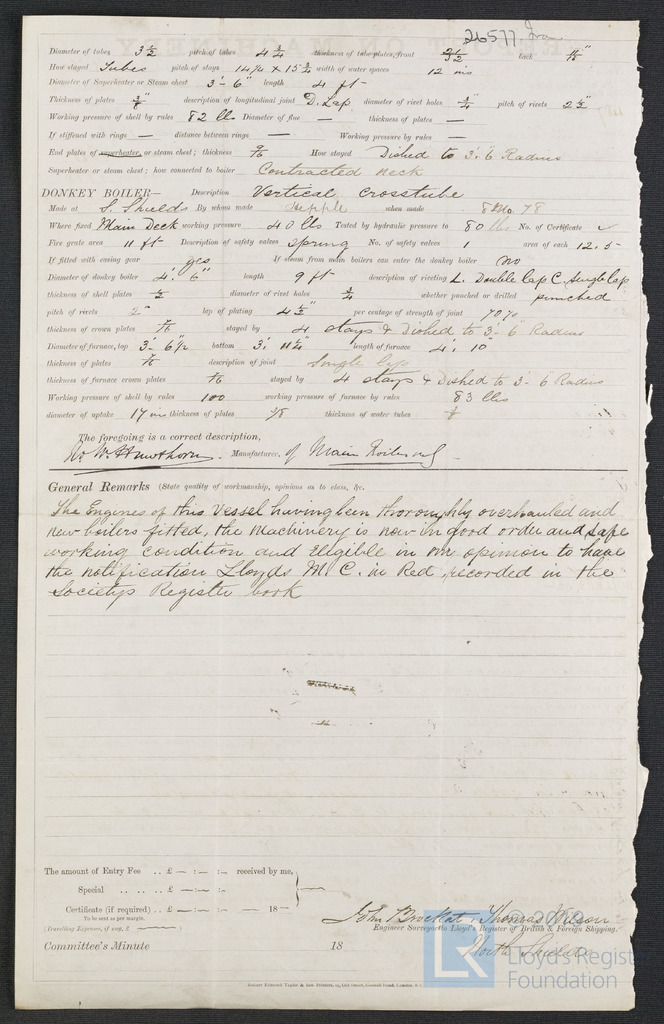 26577 Iron
Diameter of tubes 3 1/2 pitch of tubes 4 3/4 thickness of tube plates, front 3 1/2 back
How stayed Tubes pitch of stays 14 1/4 x 15 3/4 width of water spaces 12 ins
Diameter of Superheater or Steam chest 3'-6" length 4 ft
Thickness of plates description of longitudinal joint D. Lap diameter of rivet holes 3/4 pitch of rivets 2 1/2"
Working pressure of shell by rules 82 lbs Diameter of flue — thickness of plates —
If stiffened with rings — distance between rings — Working pressure by rules —
End plates of superheater, or steam chest; thickness 9/16 How stayed Dished to 3'.6 Radius
Superheater or steam chest; how connected to boiler Contracted neck
DONKEY BOILER— Description Vertical Crosstube
Made at S. Shields By whom made Hepple when made 8 Mo. 78
Where fixed Main Deck working pressure 40 lbs Tested by hydraulic pressure to 80 lbs No. of Certificate
Fire grate area 11 ft Description of safety valves Spring No. of safety valves 1 area of each 12.5
If fitted with easing gear yes If steam from main boilers can enter the donkey boiler no
Diameter of donkey boiler 4'. 6" length 9 ft description of riveting L. Double Lap C. Single Lap
thickness of shell plates diameter of rivet holes 3/4 whether punched or drilled punched
pitch of rivets 2" lap of plating 4 1/2" per centage of strength of joint 70%
thickness of crown plates stayed by 4 stays & Dished to 3'-6" Radius
Diameter of furnace, top 3'- 6 1/2 bottom 3'. 11 1/2" length of furnace 4'. 10"
thickness of plates description of joint Single lap
thickness of furnace crown plates stayed by 4 stays & Dished to 3'-6 Radius
Working pressure of shell by rules 100 working pressure of furnace by rules 83 lbs
diameter of uptake 17 in thickness of plates 3/8 thickness of water tubes
The foregoing is a correct description,
W. Hawthorn Manufacturer. of Main Boilers only
General Remarks (State quality of workmanship, opinions as to class, &c.
The Engines of this Vessel having been thoroughly overhauled and
new boilers fitted, the Machinery is now in good order and safe
working condition and Eligible in our opinion to have
the notification Lloyds M. C. in Red, recorded in the
Societys Register book
The amount of Entry Fee .. £ — : — : - received by me,
Special .. .. .. £ — : — : -
Certificate (if required) .. £ — : — : - 18—
To be sent as per margin.
(Travelling Expenses, if any, £ )
John Brockat, Thomas Wilson
Engineer Surveyor to Lloyd's Register of British & Foreign Shipping.
Committee's Minute 18
North Shields
Lloyds Regist
Foundation